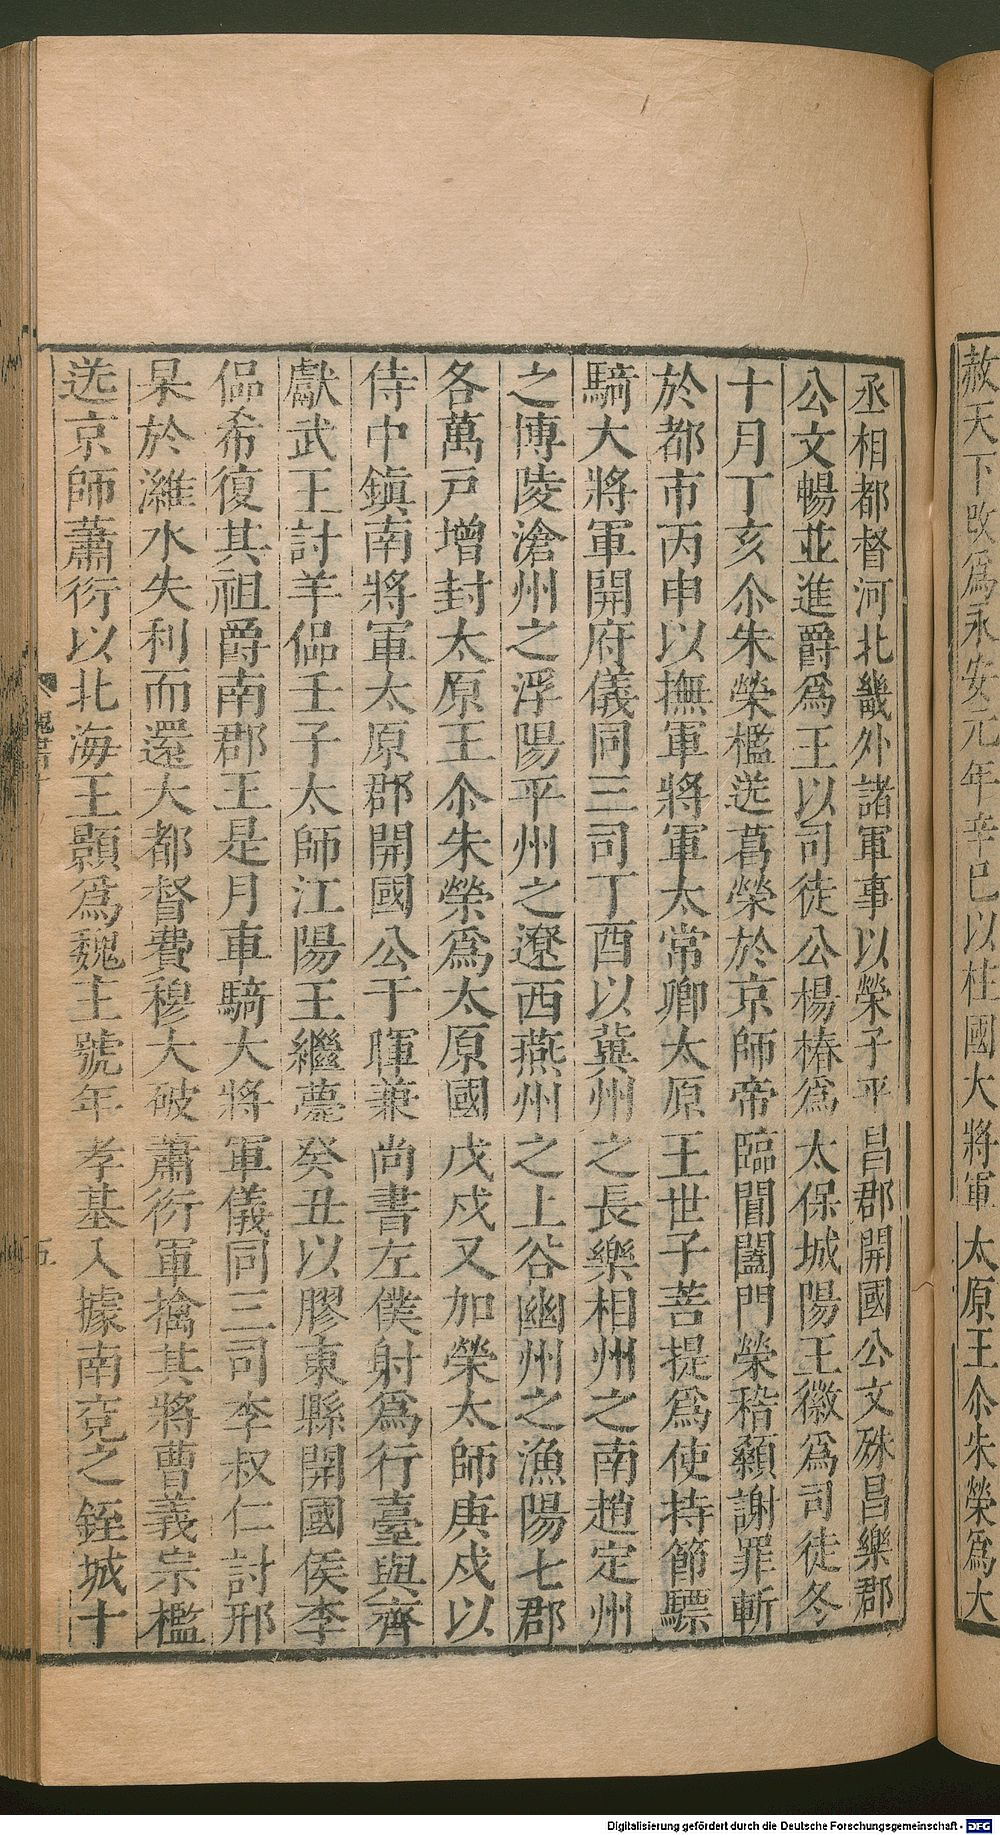 赦天下改爲永安元年辛巳以柱國大將軍太原王尒朱榮爲大
丞相都督河北畿外諸軍事以榮子平昌郡開國公文殊昌樂郡
公文暢並進爵爲王以司徒公楊椿爲太保城陽王徽爲司徒冬
十月丁亥尒朱榮檻送葛榮於京師帝臨閶闔門榮稽顙謝罪斬
於都市丙申以撫軍將軍太常卿太原王世子菩提爲使持節驃
騎大將軍開府儀同三司丁酉以冀州之長樂相州之南趙定州
之博陵滄州之浮陽平州之遼西燕州之上谷幽州之漁陽七郡
各萬戸增封太原王尒朱榮爲太原國戊戍又加榮太師庚戍以
侍中鎮南將軍太原郡開國公于暉兼尚書左僕射爲行臺與齊
獻武王討羊侃壬子太師江陽王繼薨癸丑以膠東縣開國侯李
侃希復其祖爵南郡王是月車騎大將軍儀同三司李叔仁討邢
杲於濰水失利而還大都督費穆大破蕭衍軍擒其將曹義宗檻
送京師蕭衍以北海王顥爲魏主號年孝基入據南兗之銍城十
魏書十
五
Digitalisierung gefördert durch die Deutsche Forschungsgemeinschaft - DFG